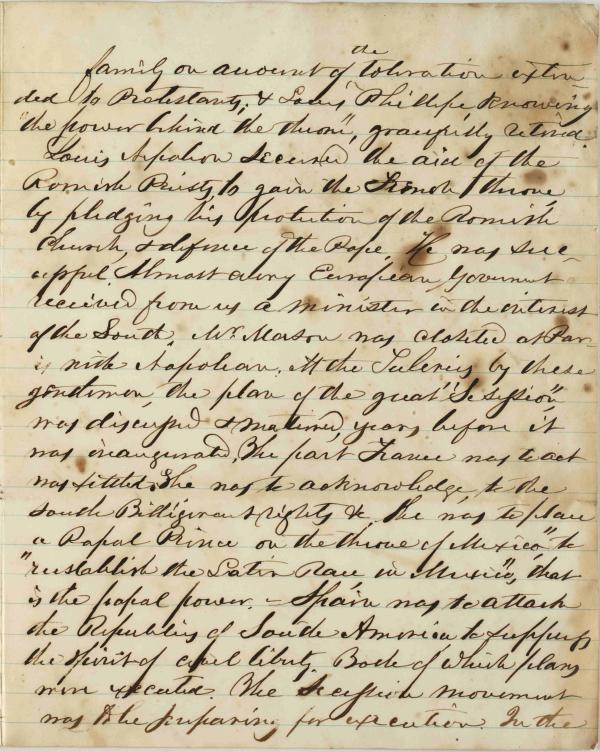 family on account of the toleration exten
ded to Protestants, & Louis Phillipe knowing
"the power behind the throne", gracefully retired.
Louis Napoleon secured the aid of the
Romish Priests, to gain the French throne,
by pledging his protection of the Romish
Church, & defence of the Pope. He was suc-
cessful. Almost every European Goverment
received from us a minister in the interest
of the South. Mr. Mason was closeted at Par-
is with Napolean. At the Tuleries by these
gentemen, the plan of the great "Secession",
was discussed & matured, years before it
was inaugurated. The part France was to act
was settled. She was to acknowledge, to the
South Billigerant rights &c. She was to place
a Papal Prince on the throne of Mexico, to
"reestablish the Latin Race in Mexico", that
is the papal power. - Spain was to attack
the Republics of South America to suppress
the spirit of civel liberty. Both of which plans
were executed. The Secession movement
was to be preparing for execution. In the